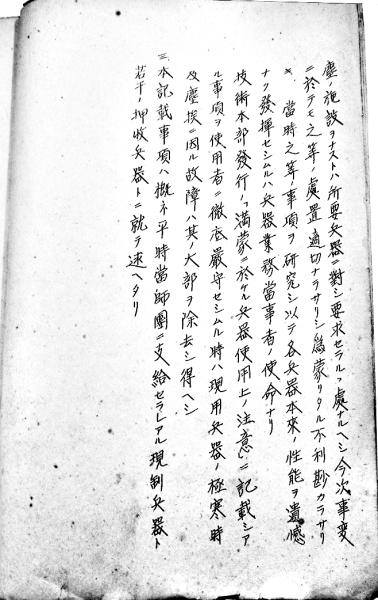 塵ノ施設ヲナストハ所要兵器ニ對シ要求セラルヽ處ナルヘシ今次事変
ニ於テモ之等ノ處置適切ナラサリシ爲蒙リタル不利尠カラサリ
キ 當時之等ノ事項ヲ研究シ以テ各兵器本來ノ性能ヲ遺憾
ナク發揮セシムルハ兵器業務當事者ノ使命ナリ
技術本部發行ノ「満蒙ニ於ケル兵器使用上ノ注意」ニ記載シア
ル事項ヲ使用者ニ徹底嚴守セシムル時ハ現用兵器ノ極寒時
及塵埃ニ因ル故障ハ其ノ大部ヲ除去シ得ヘシ
三、本記載事項ハ概ネ平時當師團ニ支給セラレアル現制兵器ト
若干ノ押收兵器トニ就テ述ヘタリ